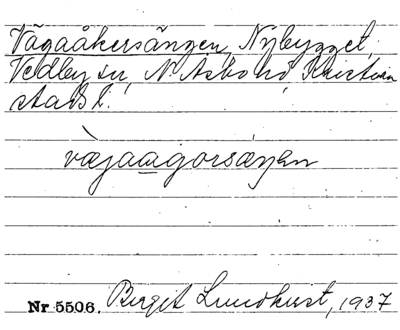 Vägaåkersängen, Nybygget,
Vedby sn, N. Åsbo hd Kristian
stads l.
vägaagorsäŋen
Nr 5506. Birgit Lundkvist, 1937